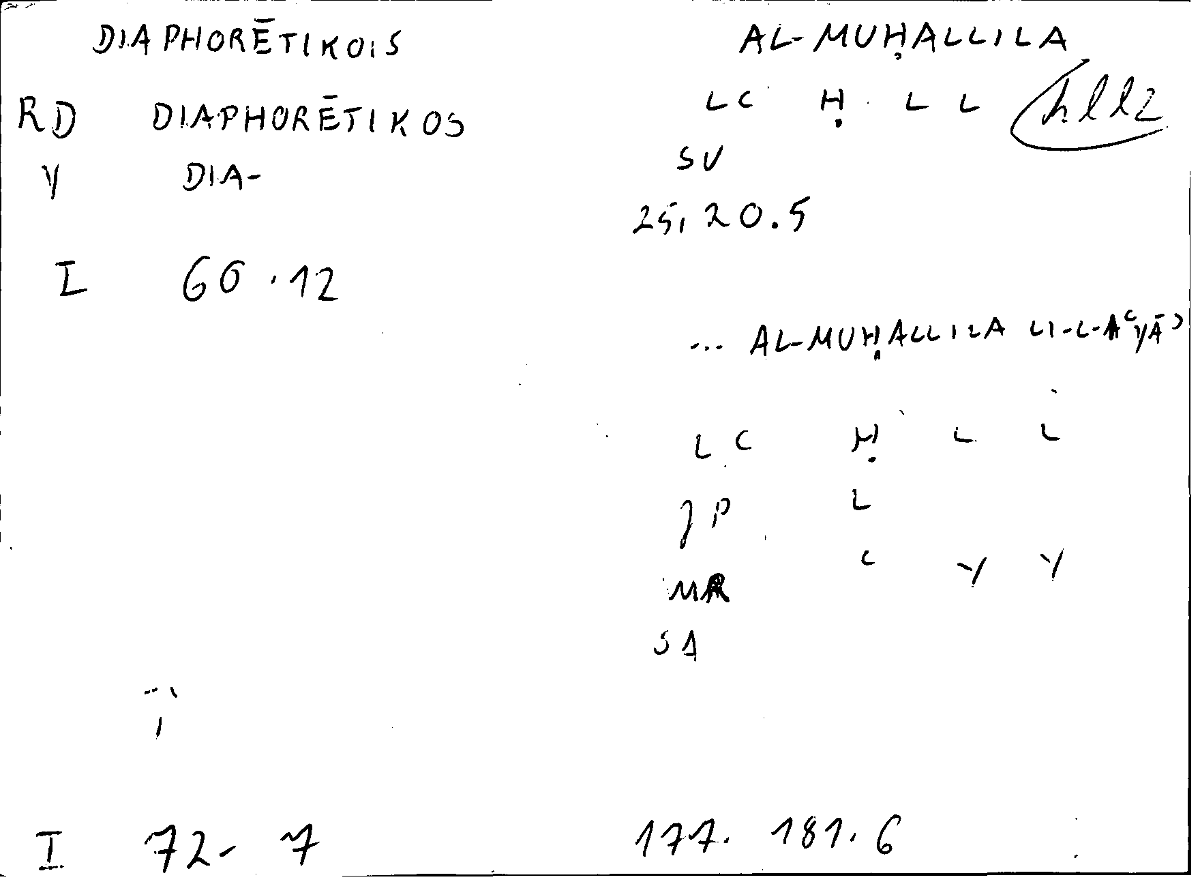 DIAPHORĒTIKOIS AL-MUḤALLILA
RD DIAPHORĒTIKOS LC Ḥ L L ḥll2
V DIA- SU
25, 20.5
I 66.12
... AL-MUḤALLILA LI-L-AʿYĀʾ
LC Ḥ L L
JP L
MR ʿ Y Y
SA
I 72- 7 177. 181.6